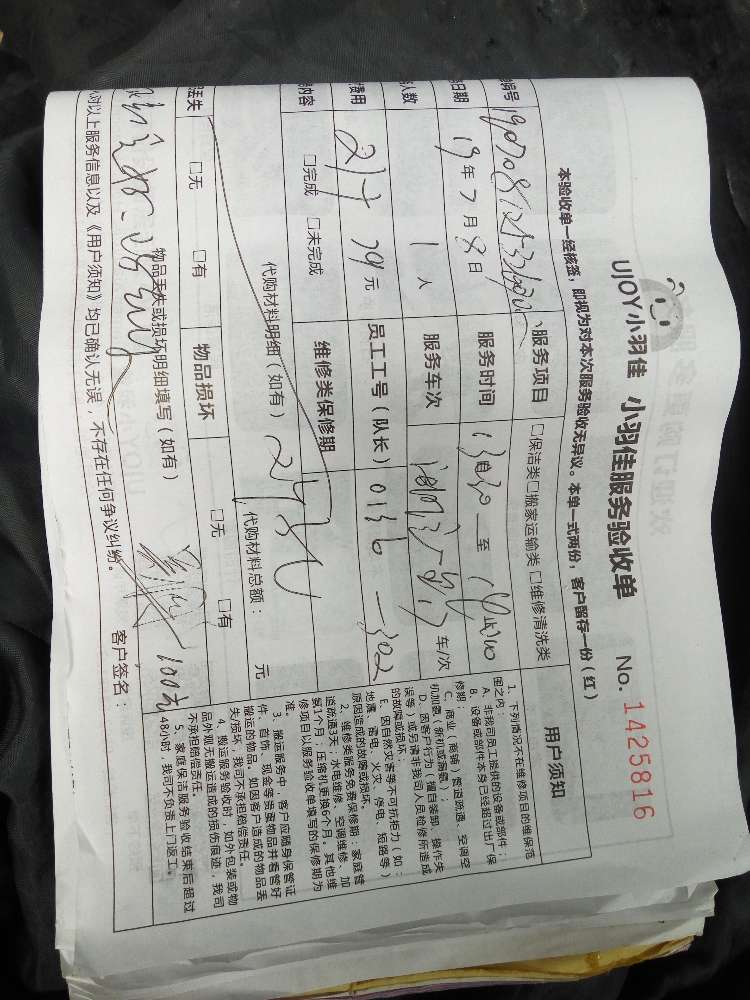 UJOY小羽佳 小羽佳服务验收单 No. 1425816
本验收单一经核签，即视为对本次服务验收无异议。本单一式两份，客户留存一份（红）
编号
服务项目 □保洁类□搬家运输类 □维修清洗类
日期 19年7月8日 服务时间 至
人数 1人 服务车次 车/次
费用 元 员工工号（队长） 0136 — 302
内容 □完成 □未完成 维修类保修期
代购材料明细（如有） 代购材料总额： 元
丢失 □无 □有 物品损坏 □无 □有
物品丢失或损坏明细填写（如有）
100元
对以上服务信息以及《用户须知》均已确认无误，不存在任何争议纠纷。 客户签名：
用户须知
1、下列情况不在维修项目的维保范
围之内：
A、非我司员工提供的设备或部件；
B、设备或部件本身已经超过出厂保
修期；
C、商业（商铺）管道疏通、空调空
机加氟（新机或漏氟）；
D、因客户行为（擅自装卸、操作失
误等）或另请非我司人员检修所造成
的故障或损坏；
E、因自然灾害等不可抗拒力（如：
地震、雷电、火灾、停电、短路等）
原因造成的故障或损坏。
2、维修类服务免费保修期：家庭管
道疏通3天，水电维修、空调维修、加
氟1个月，压缩机更换6个月。其他维
修项目以服务验收单填写的保修期为
准。
3、搬运服务中，客户应随身保管证
件、首饰、现金等贵重物品并看管好
搬运的物品，如因客户造成的物品丢
失/损坏，我司不承担赔偿责任。
4、搬运服务验收时，如外包装或物
品外观无搬运造成的损伤痕迹，我司
不承担赔偿责任。
5、家庭保洁服务验收结束后超过
48小时，我司不负责上门返工。